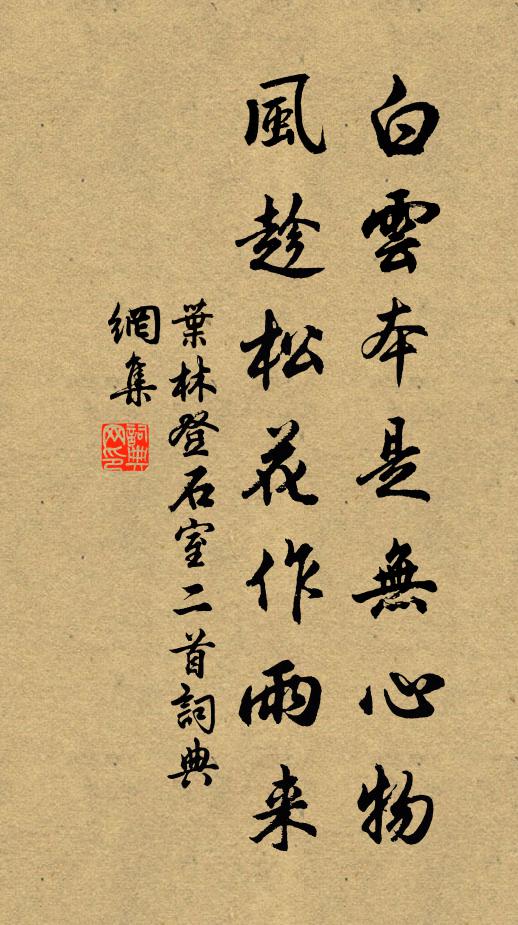 白雲本是無心物
風趁松花作雨来
葉林登石室二首詞典
網集
詞典
网印